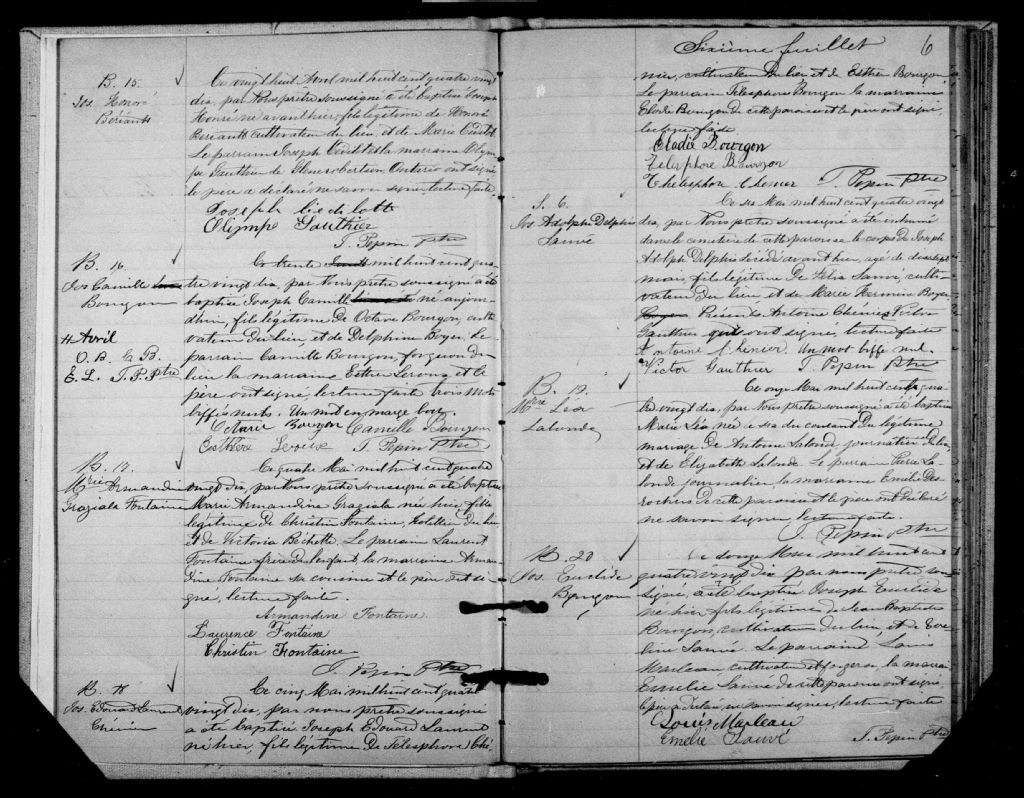 B. 15.
Jos. Honoré
Bériault
Ce vingt huit Avril mil huit cent quatre vingt
dix, par Nous prêtre soussigné a été baptisé Joseph
Honoré né avant hier, fils légitime de Honoré
Bériault cultivateur du lieu et de Marie
Le parrain Joseph la marraine Olym
pe Gauthier de Ontario ont signé
le père a déclaré ne savoir signer lecture faite
Joseph
Olympe Gauthier
T. Pepin Ptre
B. 16.
Jos Camille
Bourgon
Ce trente mil huit cent qua
tre vingt dix, par Nous prêtre soussigné a été
baptisé Joseph Camille né aujour
d'hui, fils légitime de Octave Bourgon, culti
vateur du lieu, et de Delphine Boyer. Le
parrain Camille Bourgon, forgeron du
lieu la marraine Esther et le
père ont signé, lecture faite trois mots
biffés nuls. Un mot en marge bon.
Avril
O. B. C. B.
E. L. T. P. Ptre
Octave Bourgon Camille Bourgon
Esthère T. Pepin Ptre
B. 17.
Mrie Armandine
Graziala Fontaine
Ce quatre Mai mil huit cent quatre
vingt dix, par Nous prêtre soussigné a été baptisée
Marie Armandine Graziala née hier, fille
légitime de Christin Fontaine, hôtellier du lieu
et de Victoria Béchette. Le parrain Laurent
Fontaine frère de l'enfant, la marraine Arman
dine Fontaine sa cousine et le père ont si
gné, lecture faite.
Armandine Fontaine
Laurence Fontaine
Christin Fontaine
T. Pepin Ptre
B. 18
Jos. Edouard Laurent
Chénier
Ce cinq Mai mil huit cent quatre
vingt dix, par nous prêtre soussigné
a été baptisé Joseph Edouard Laurent
né hier, fils légitime de Télesphore Ché
Sixième feuillet 6
nier, cultivateur du lieu et de Esther Bourgon
Le parrain Télesphore Bourgon la marraine
Elodie Bourgon de cette paroisse et le père ont signé,
lecture faite
Elodie Bourgon
Télesphore Bourgon
Thélesphore Chenier T. Pepin Ptre
S. 6.
Jos. Adolph Delphis
Sauvé
Ce six Mai mil huit cent quatre vingt
dix, par Nous prêtre soussigné a été inhumé
dans le cimetière de cette paroisse le corps de Joseph
Adolph Delphis décédé avant hier, agé de dix sept
mois, fils légitime de Félix Sauvé, culti
vateur du lieu et de Marie Hermine Boyer
Présents Antoine Chenier Victor
Gauthier qui ont signé, lecture faite
Antoine Chénier. Un mot biffé nul.
Victor Gauthier T. Pepin Ptre
B. 19.
Mrie Léa
Lalonde
Ce onze Mai mil huit cent qua
tre vingt dix, par Nous prêtre soussigné a été baptisée
Marie Léa née le six du courant du légitime
mariage de Antoine Lalonde, journalier du lieu
et de Elizabeth Lalonde. Le parrain Pierre La
londe journalier, la marraine Emélie Des
rochers de cette paroisse et le père ont déclaré
ne savoir signer, lecture faite.
T. Pepin Ptre
B. 20
Jos. Euclide
Bourgon
Ce onze Mai mil huit cent
quatre vingt dix par nous prêtre sous
signé, a été baptisé Joseph Euclide
né hier, fils légitime de Jean Baptiste
Bourgon, cultivateur du lieu, et de
Sauvé. Le parrain Louis
Marleau cultivateur la marraine
Emélie Sauvé de cette paroisse ont signé,
le père ne savoir signer, lecture faite
Louis Marleau
Emelie Sauvé T. Pepin Ptre